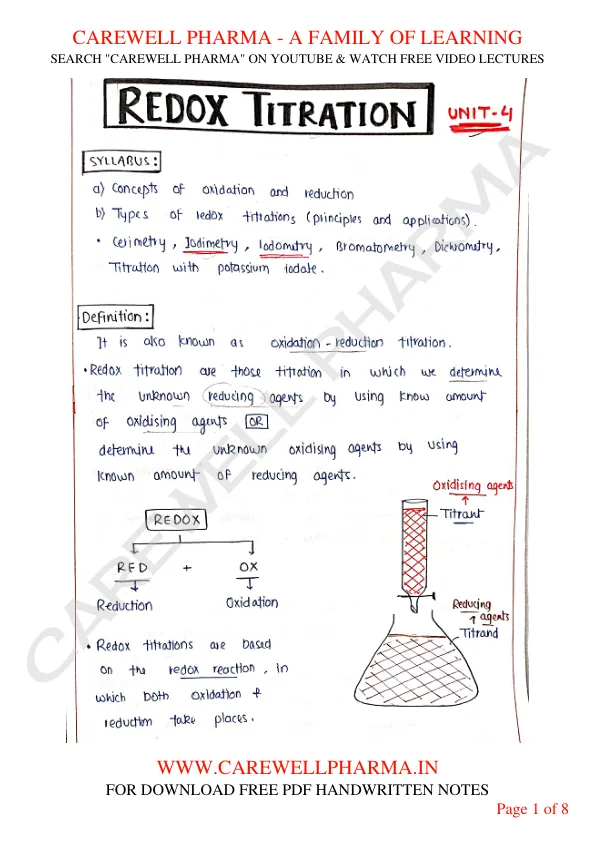 CAREWELL PHARMA - A FAMILY OF LEARNING
SEARCH "CAREWELL PHARMA" ON YOUTUBE & WATCH FREE VIDEO LECTURES
REDOX TITRATION
UNIT-4
SYLLABUS:
a) Concepts of oxidation and reduction
b) Types of redox titrations (principles and applications).
• Cerimetry, Iodimetry, Iodometry, Bromatometry, Dichrometry,
Titration with potassium iodate.
Definition:
It is also known as oxidation-reduction titration.
• Redox titration are those titration in which we determine
the unknown reducing agents by using know amount
of oxidising agents OR
determine the unknown oxidising agents by using
known amount of reducing agents.
Oxidising agents
Titrant
REDOX
RED + OX
Reduction Oxidation
Reducing
agents
Titrand
• Redox titrations are based
on the redox reaction, in
which both oxidation &
reduction take places.
CAREWELL PHARMA
WWW.CAREWELLPHARMA.IN
FOR DOWNLOAD FREE PDF HANDWRITTEN NOTES
Page 1 of 8